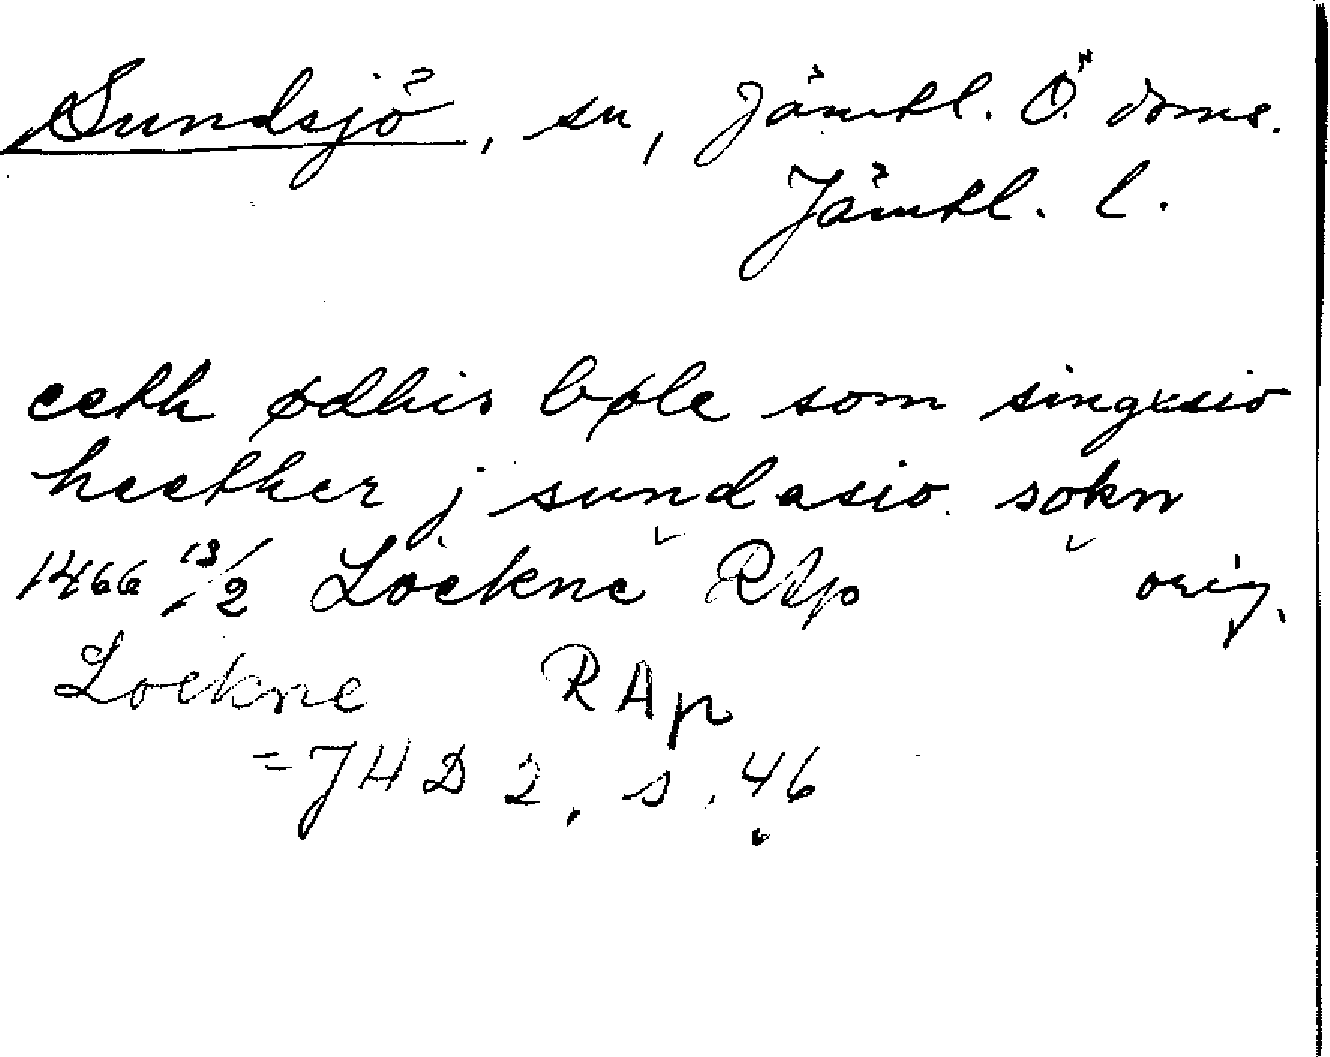 Sundsjö, sn, Jämtl. Ö. doms.
Jämtl. l.
eeth ødhis bøle som singxsio
heether j sundasio sokn
1466 13/2 Lockne RAp orig.
Lockne RAp
=JHD 2, s. 46